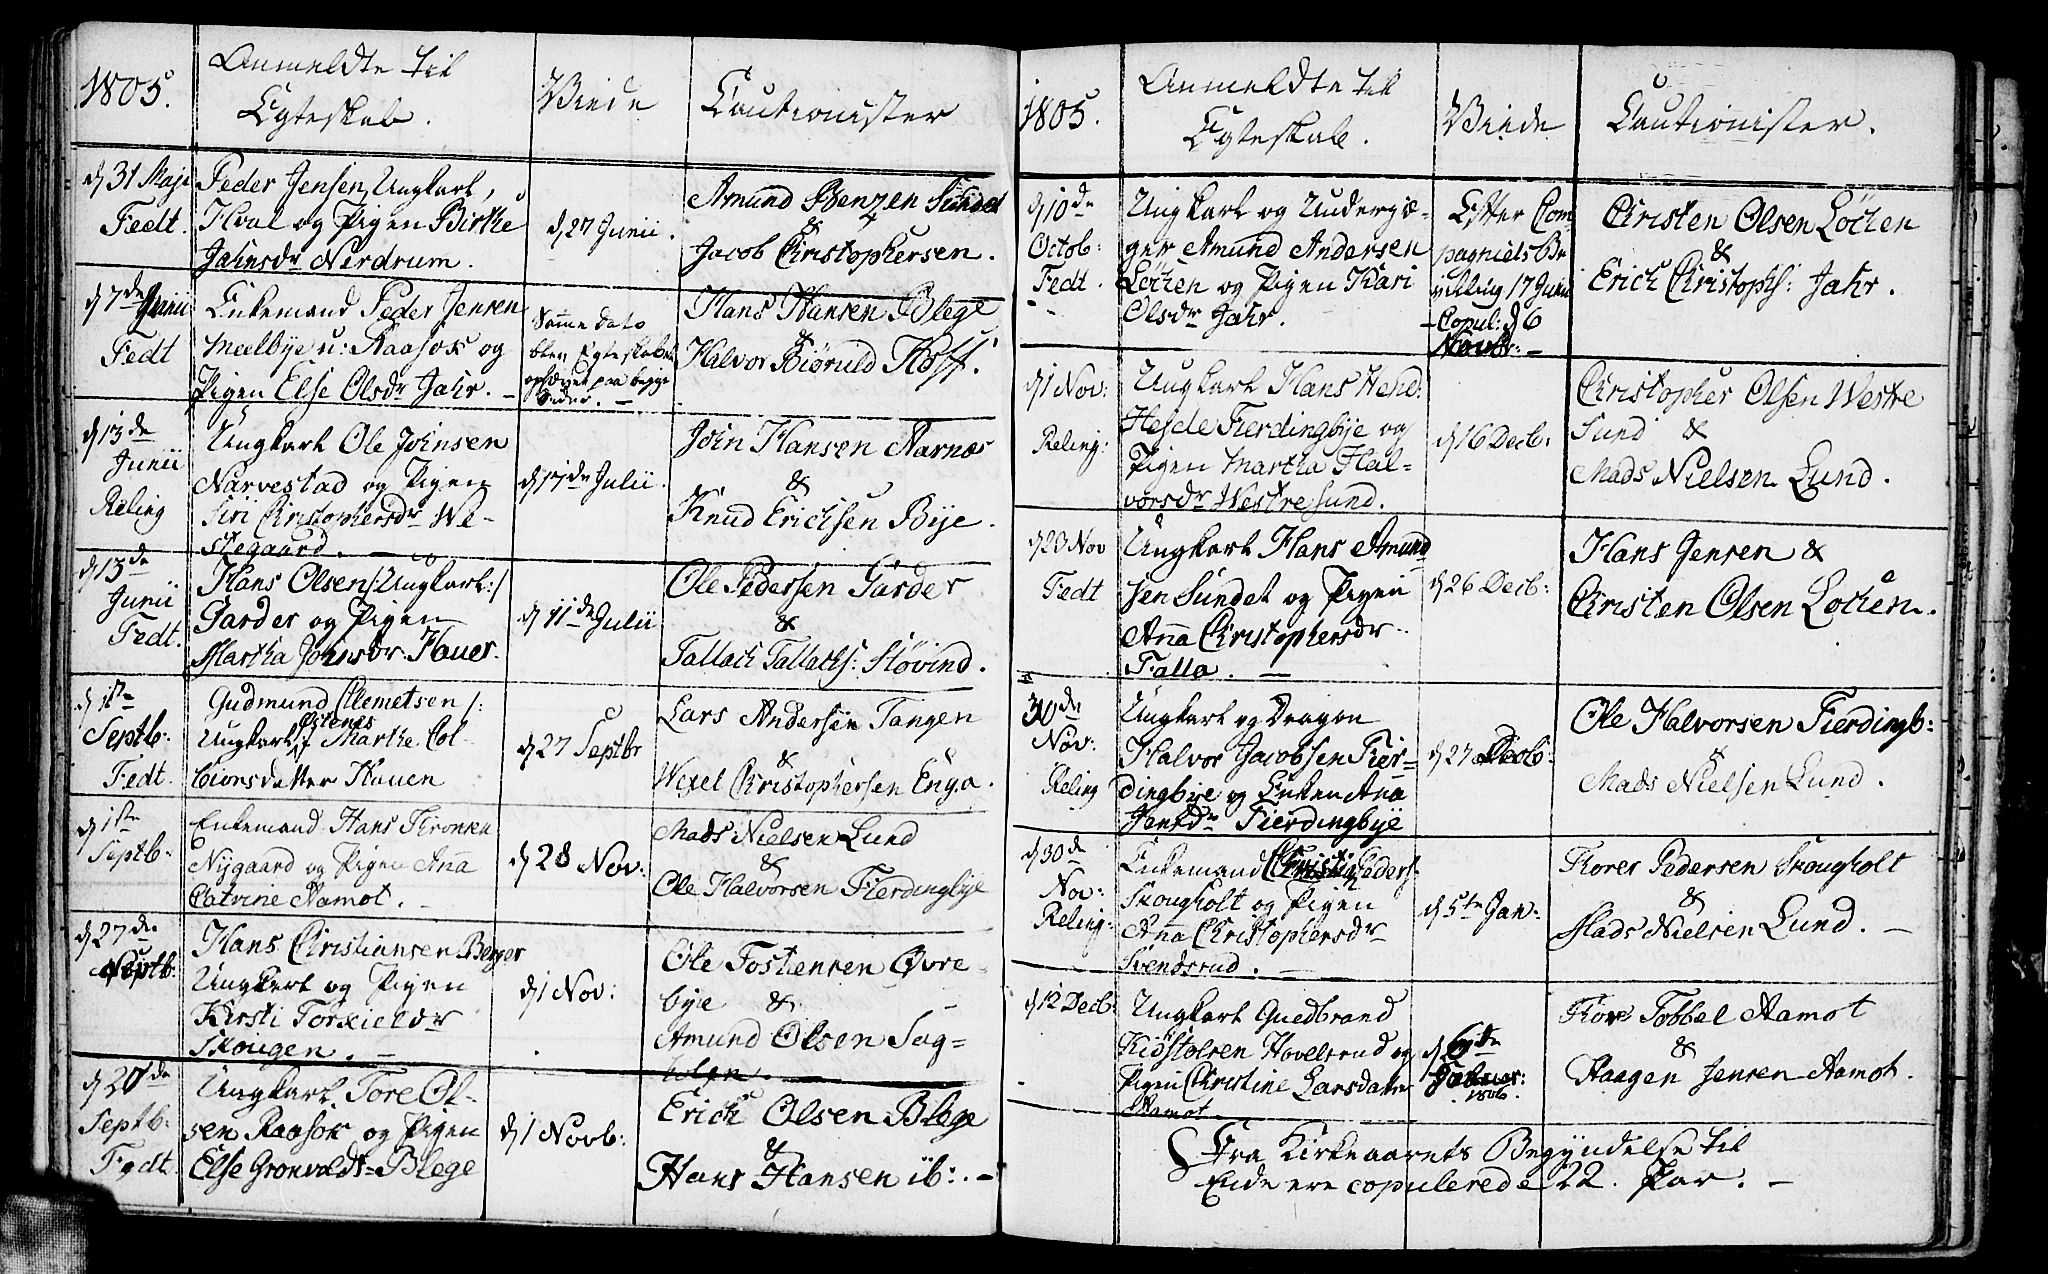 1805.
Anmeldte til
Egteskab.
Viede
Cautionister
d 31 Maji
Fedt.
Peder Jensen, Ungkarl,
Hval og Pigen Birthe
Jahnsdr Nerdrum.
d 27 Junii.
Amund Benzen Sundet
&
Jacob Christophersen.
d 7de Junii
Fedt
Enkemand Peder Jensen
Meelbye u: Raasok og
Pigen Else Olsdr Jahr. -
Samme dato
blev Egteskabet
ophævet paa begge
Sider. -
Hans Hansen Blege
&
Halvor Biøruld Hoff.
d 13de
Junii
Reling
Ungkarl Ole Johnsen
Narvestad og Pigen
Siri Christophersdr We-
stegaard. -
d 17de Julii.
John Hansen Aarnæs
&
Knud Erichsen Bye.
d 13de
Junii
Fedt.
Hans Olsen /:Ungkarl:/
Garder og Pigen
Martha Johnsdr. Hauer.
d 11de Julii
Ole Pedersen Garder
&
Tallach Tallachs: Støvind.
d 1ste
Septb:
Fedt.
Gudmund Clemetsen /:
Ungkarl :/ Østenes
Marthe Col-
biørnsdatter Hauen
d 27 Septbr
Lars Andersen Tangen
&
Wexel Christophersen Enga.
d 1ste
Septb:
Enkemand Hans Thronsen
Nygaard og Pigen Anna
Catrine Aamot. -
d 28 Nov:
Mads Nielsen Lund
&
Ole Halvorsen Fierdingbye
d 27de
Septb:
Hans Christiansen Berger
Ungkarl og Pigen
Kirsti Torkieldr
Skougen. -
d 1 Nov:
Ole Tostensen Øvre-
bye & -
Amund Olsen Sag-
stolen.
d 20de
Septb:
Fedt.
Ungkarl Tore Ol-
sen Raasok og Pigen
Else Gronvolds= Blege
d 1 Novb:
Erich Olsen Blege
&
Hans Hansen ib: . -
1805.
Anmeldte til
Egteskab.
Viede
Cautionister.
d 10de
Octob:
Fedt.
Ungkarl og Underjæ-
ger Amund Andersen
Løchen og Pigen Kari
Olsdr Jahr.
Efter Com
pagniets Be
villing 17 Junii
- Copul: d 6
Novbr: -
Christen Olsen Løchen
&
Erich Christophs: Jahr.
d 1 Nov:
Reling:
Ungkarl Hans Hend:
Hesde Fierdingbye og
Pigen Martha Hal-
vorsdr Westre Sund.
d 16 Decb:
Christopher Olsen Westre
Sund &
Mads Nielsen Lund.
d 23 Nov
Fedt
Ungkarl Hans Amund
sen Sundet og Pigen
Anna Christophersdr
Falla. -
d 26 Decb:
Hans Jensen &
Christen Olsen Lochen.
30de
Nov:
Reling
Ungkarl og Dragon
Halvor Jacobsen Fier-
dingbye og Enken Ana
Jensdr Fierdingbye
d 27 Decb:
Ole Halvorsen Fierdingb:
&
Mads Nielsen Lund.
d 30de
Nov:
Reling:
Enkemand Christen Peders:
Skougholt og Pigen
Anna Christophersdr
Svendsrud. -
d 5te Jan:
Thorer Pedersen Skougholt
&
Mads Nielsen Lund. -
d 12 Decb:
Ungkarl Guedbrand
Kiøstolsen Hovelsrud og
Pigen Christine Larsdatter
Aamot
d 6de
Januar:
1806.
Thore Tobbel Aamot
&
Haagen Jensen Aamot.
Fra Kirkeaarets Begyndelse til
Ende ere copulerede 22. Par. -